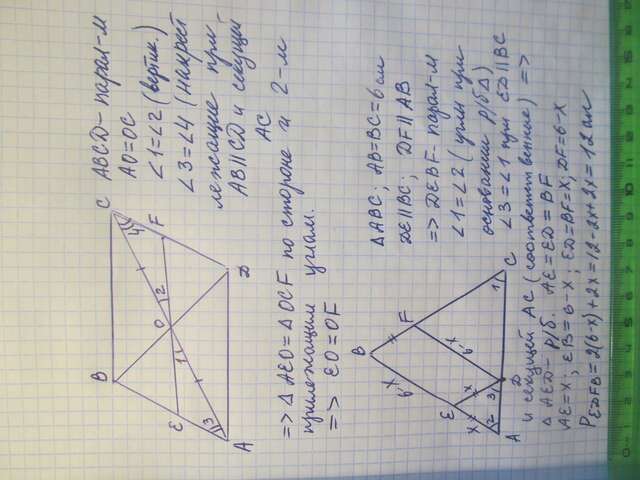 ABCD - парал-м
AO=OC
∠1=∠2 (вертик.)
∠3=∠4 (накрест
лежащие при
AB∥CD и секущей
AC
=> △AEO=△OCF по стороне и 2-м
прилежащим углам.
=> EO=OF
B
C
E
O
F
A
D
1
2
3
4
△ABC; AB=BC=6см
DE∥BC; DF∥AB
=> DEBF- парал-м
∠1=∠2 (углы при
основании р/б△)
∠3=∠1 при ED∥BC
и секущей AC (соответственные) =>
△AED- р/б. AE=ED=BF
AE=x; EB=6-x; ED=BF=x; DF=6-x
P EDFB=2(6-x)+2x=12-2x+2x=12см
B
6-x
x
F
E
6-x
x
x
A
2
3
D
1
C
0
1
2
3
4
5
6
7
8